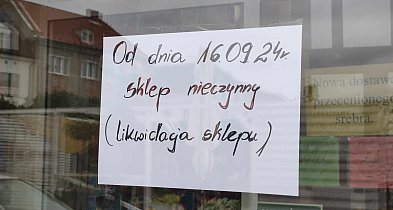 Od dnia 16.09.24r.
sklep nieczynny
(likwidacja sklepu)
Nowa dostawa
przecenionego
srebra.